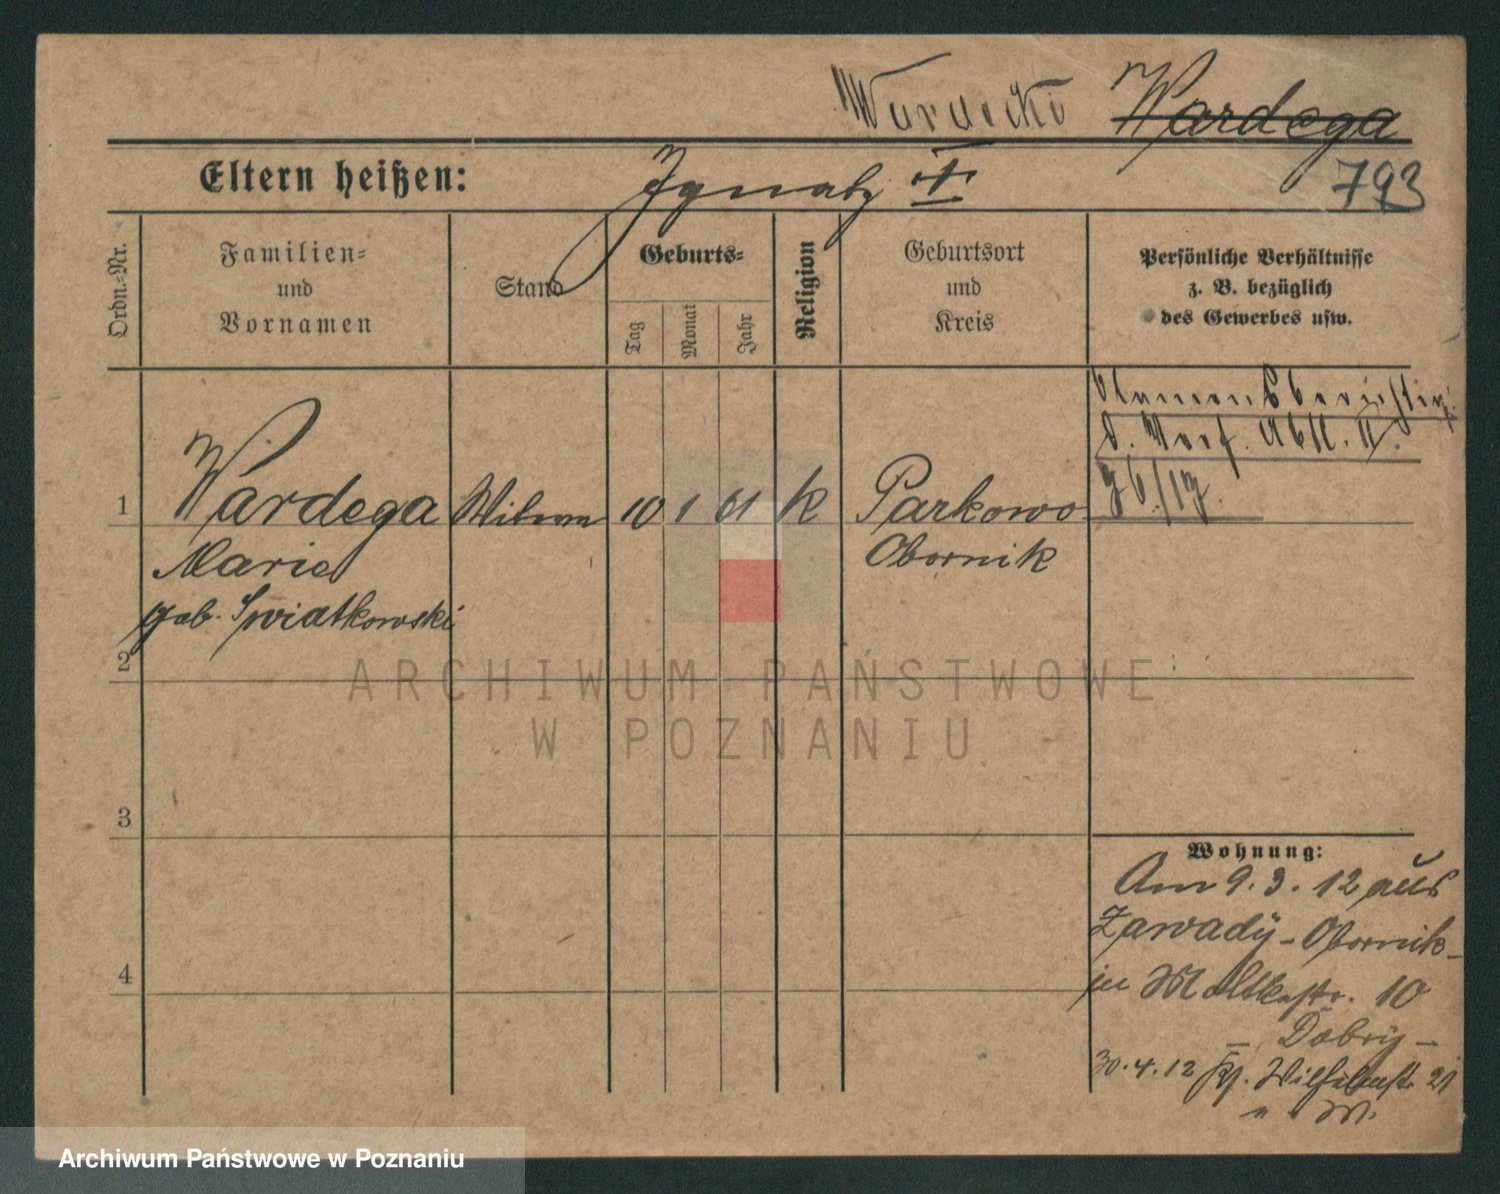 Wardecki Wardega
Eltern heißen: Ignatz †
793
Ordn.-Nr.
Familien-
und
Vornamen
Stand
Geburts-
Tag
Monat
Jahr
Religion
Geburtsort
und
Kreis
Persönliche Verhältnisse
z. B. bezüglich
des Gewerbes usw.
Namensberichtig.
d. Verf. Abtl. II.
1 Wardega Witwe 10 1 61 k Parkowo
Marie Obornik
geb. Swiatkowski
2
3
4
ARCHIWUM PAŃSTWOWE
W POZNANIU
Wohnung:
Am 9.3.12 aus
Zawady - Obornik -
in Moltkestr. 10
- Dobry -
30.4.12 Kr. Wilhelmstr. 21
Archiwum Państwowe w Poznaniu